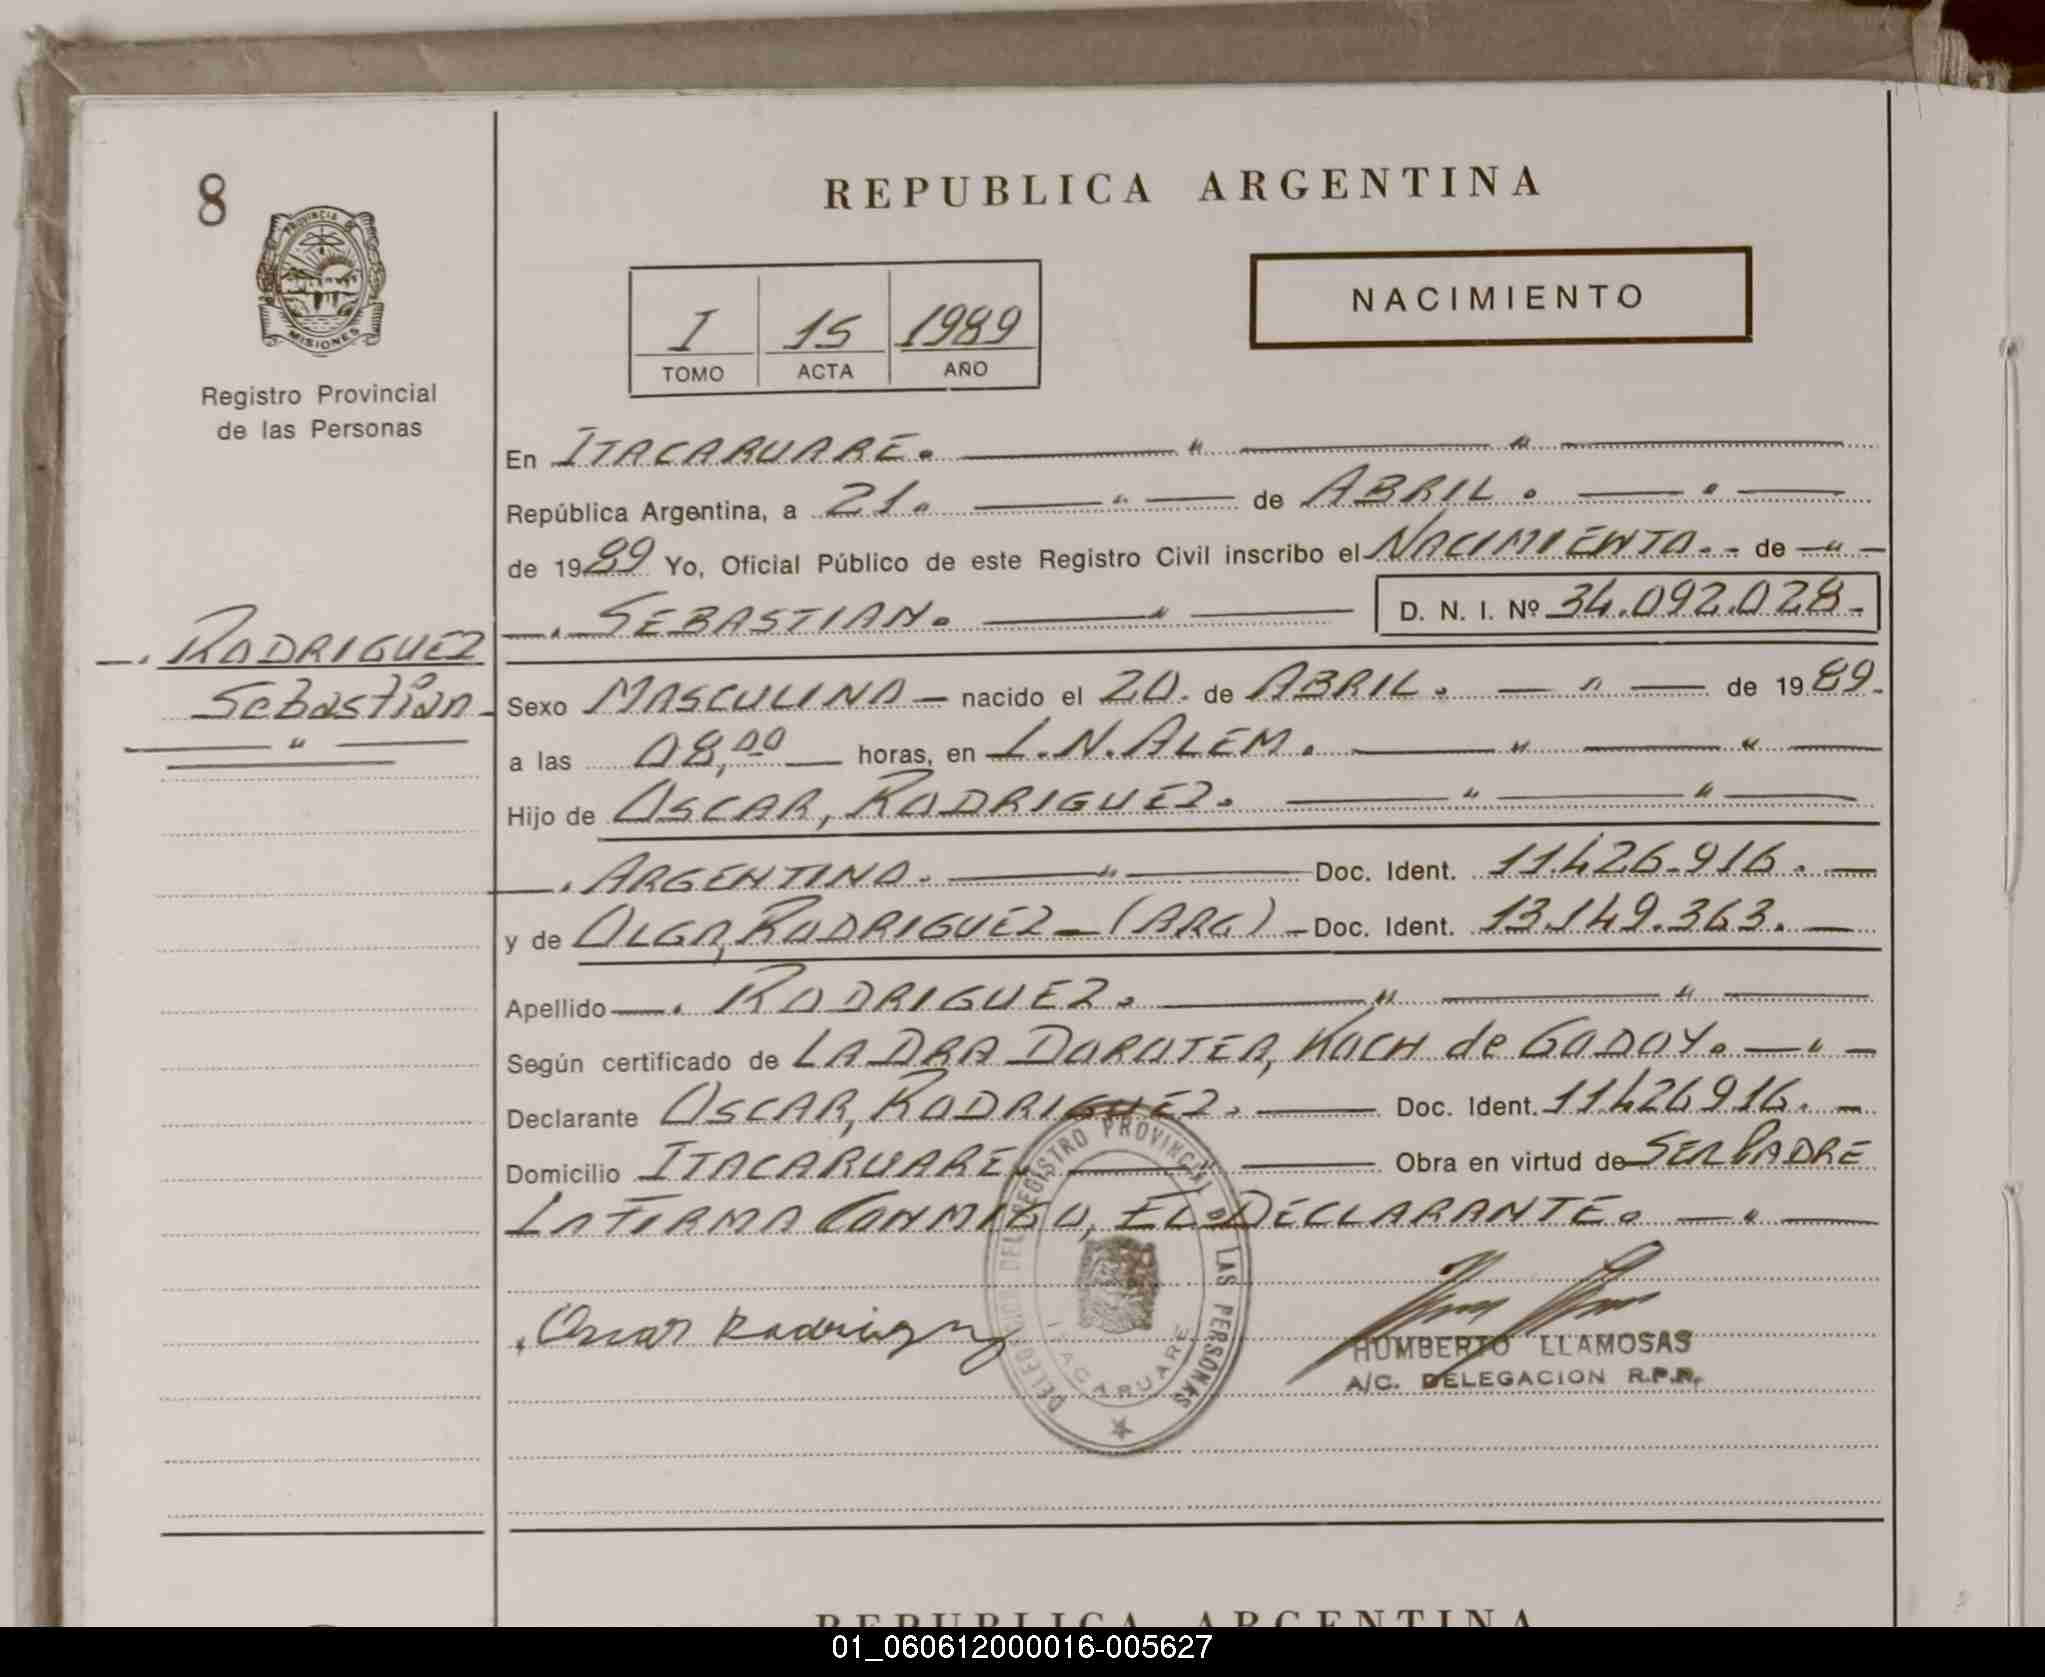 8
PROVINCIA DE
MISIONES
Registro Provincial
de las Personas
REPUBLICA ARGENTINA
NACIMIENTO
I 15 1989
TOMO ACTA AÑO
En ITACARUARE. " "
República Argentina, a 21. " de ABRIL. "
de 1989 Yo, Oficial Público de este Registro Civil inscribo el NACIMIENTO.- de "
SEBASTIAN. " D. N. I. Nº 34.092.028.-
RODRIGUEZ
Sebastian
"
Sexo MASCULINO nacido el 20. de ABRIL. " de 1989.
a las 08,00 horas, en L.N.ALEM. " "
Hijo de OSCAR, RODRIGUEZ. " "
ARGENTINO. " Doc. Ident. 11.426.916.
y de OLGA, RODRIGUEZ (ARG) Doc. Ident. 13.149.363.
Apellido RODRIGUEZ. " "
Según certificado de LA DRA DOROTEA, KOCH de GODOY. "
Declarante OSCAR, RODRIGUEZ. Doc. Ident. 11426916.
Domicilio ITACARUARE. " Obra en virtud de SER PADRE
LA FIRMA CONMIGO, EL DECLARANTE. "
Oscar Rodriguez
DELEGACION DEL REGISTRO PROVINCIAL DE LAS PERSONAS
ITACARUARE
HUMBERTO LLAMOSAS
A/C. DELEGACION R.P.P.
REPUBLICA ARGENTINA
01_060612000016-005627